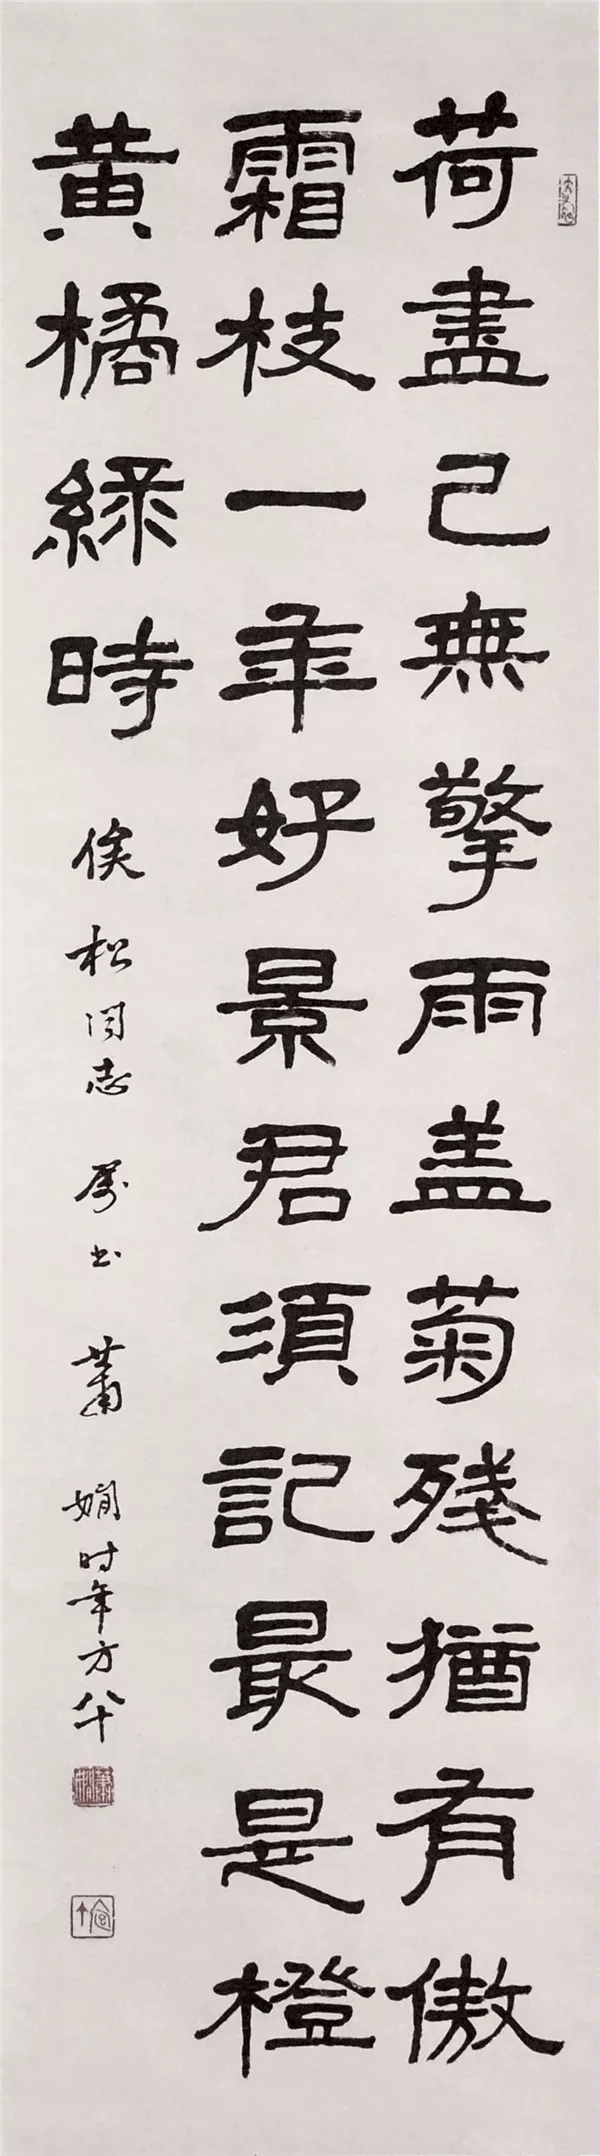 荷盡已無擎雨盖菊殘猶有傲
霜枝一年好景君須記最是橙
黄橘緑時
俟松同志属书萧娴时年方八十